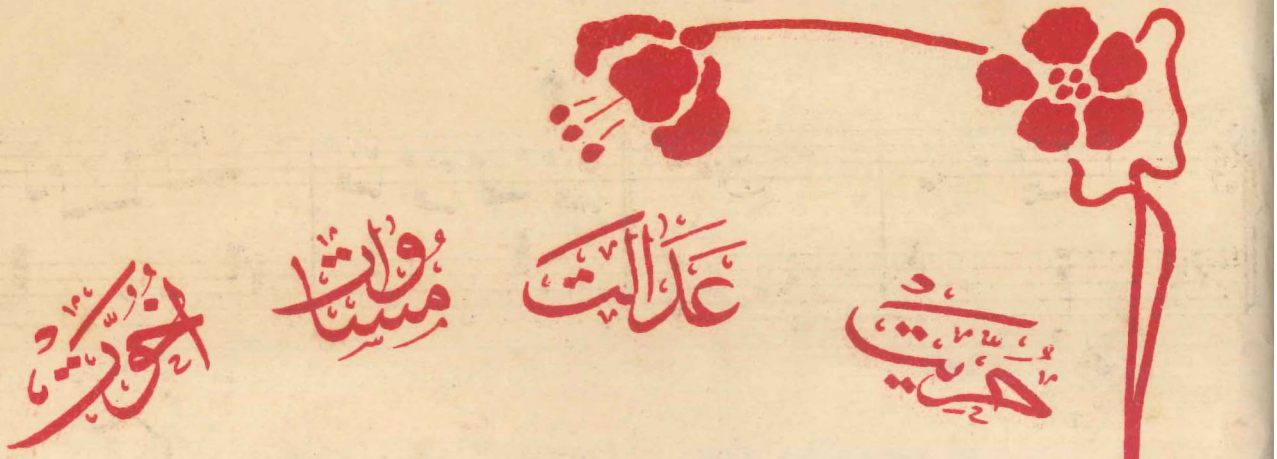 حریت عدالت مساوات اخوت